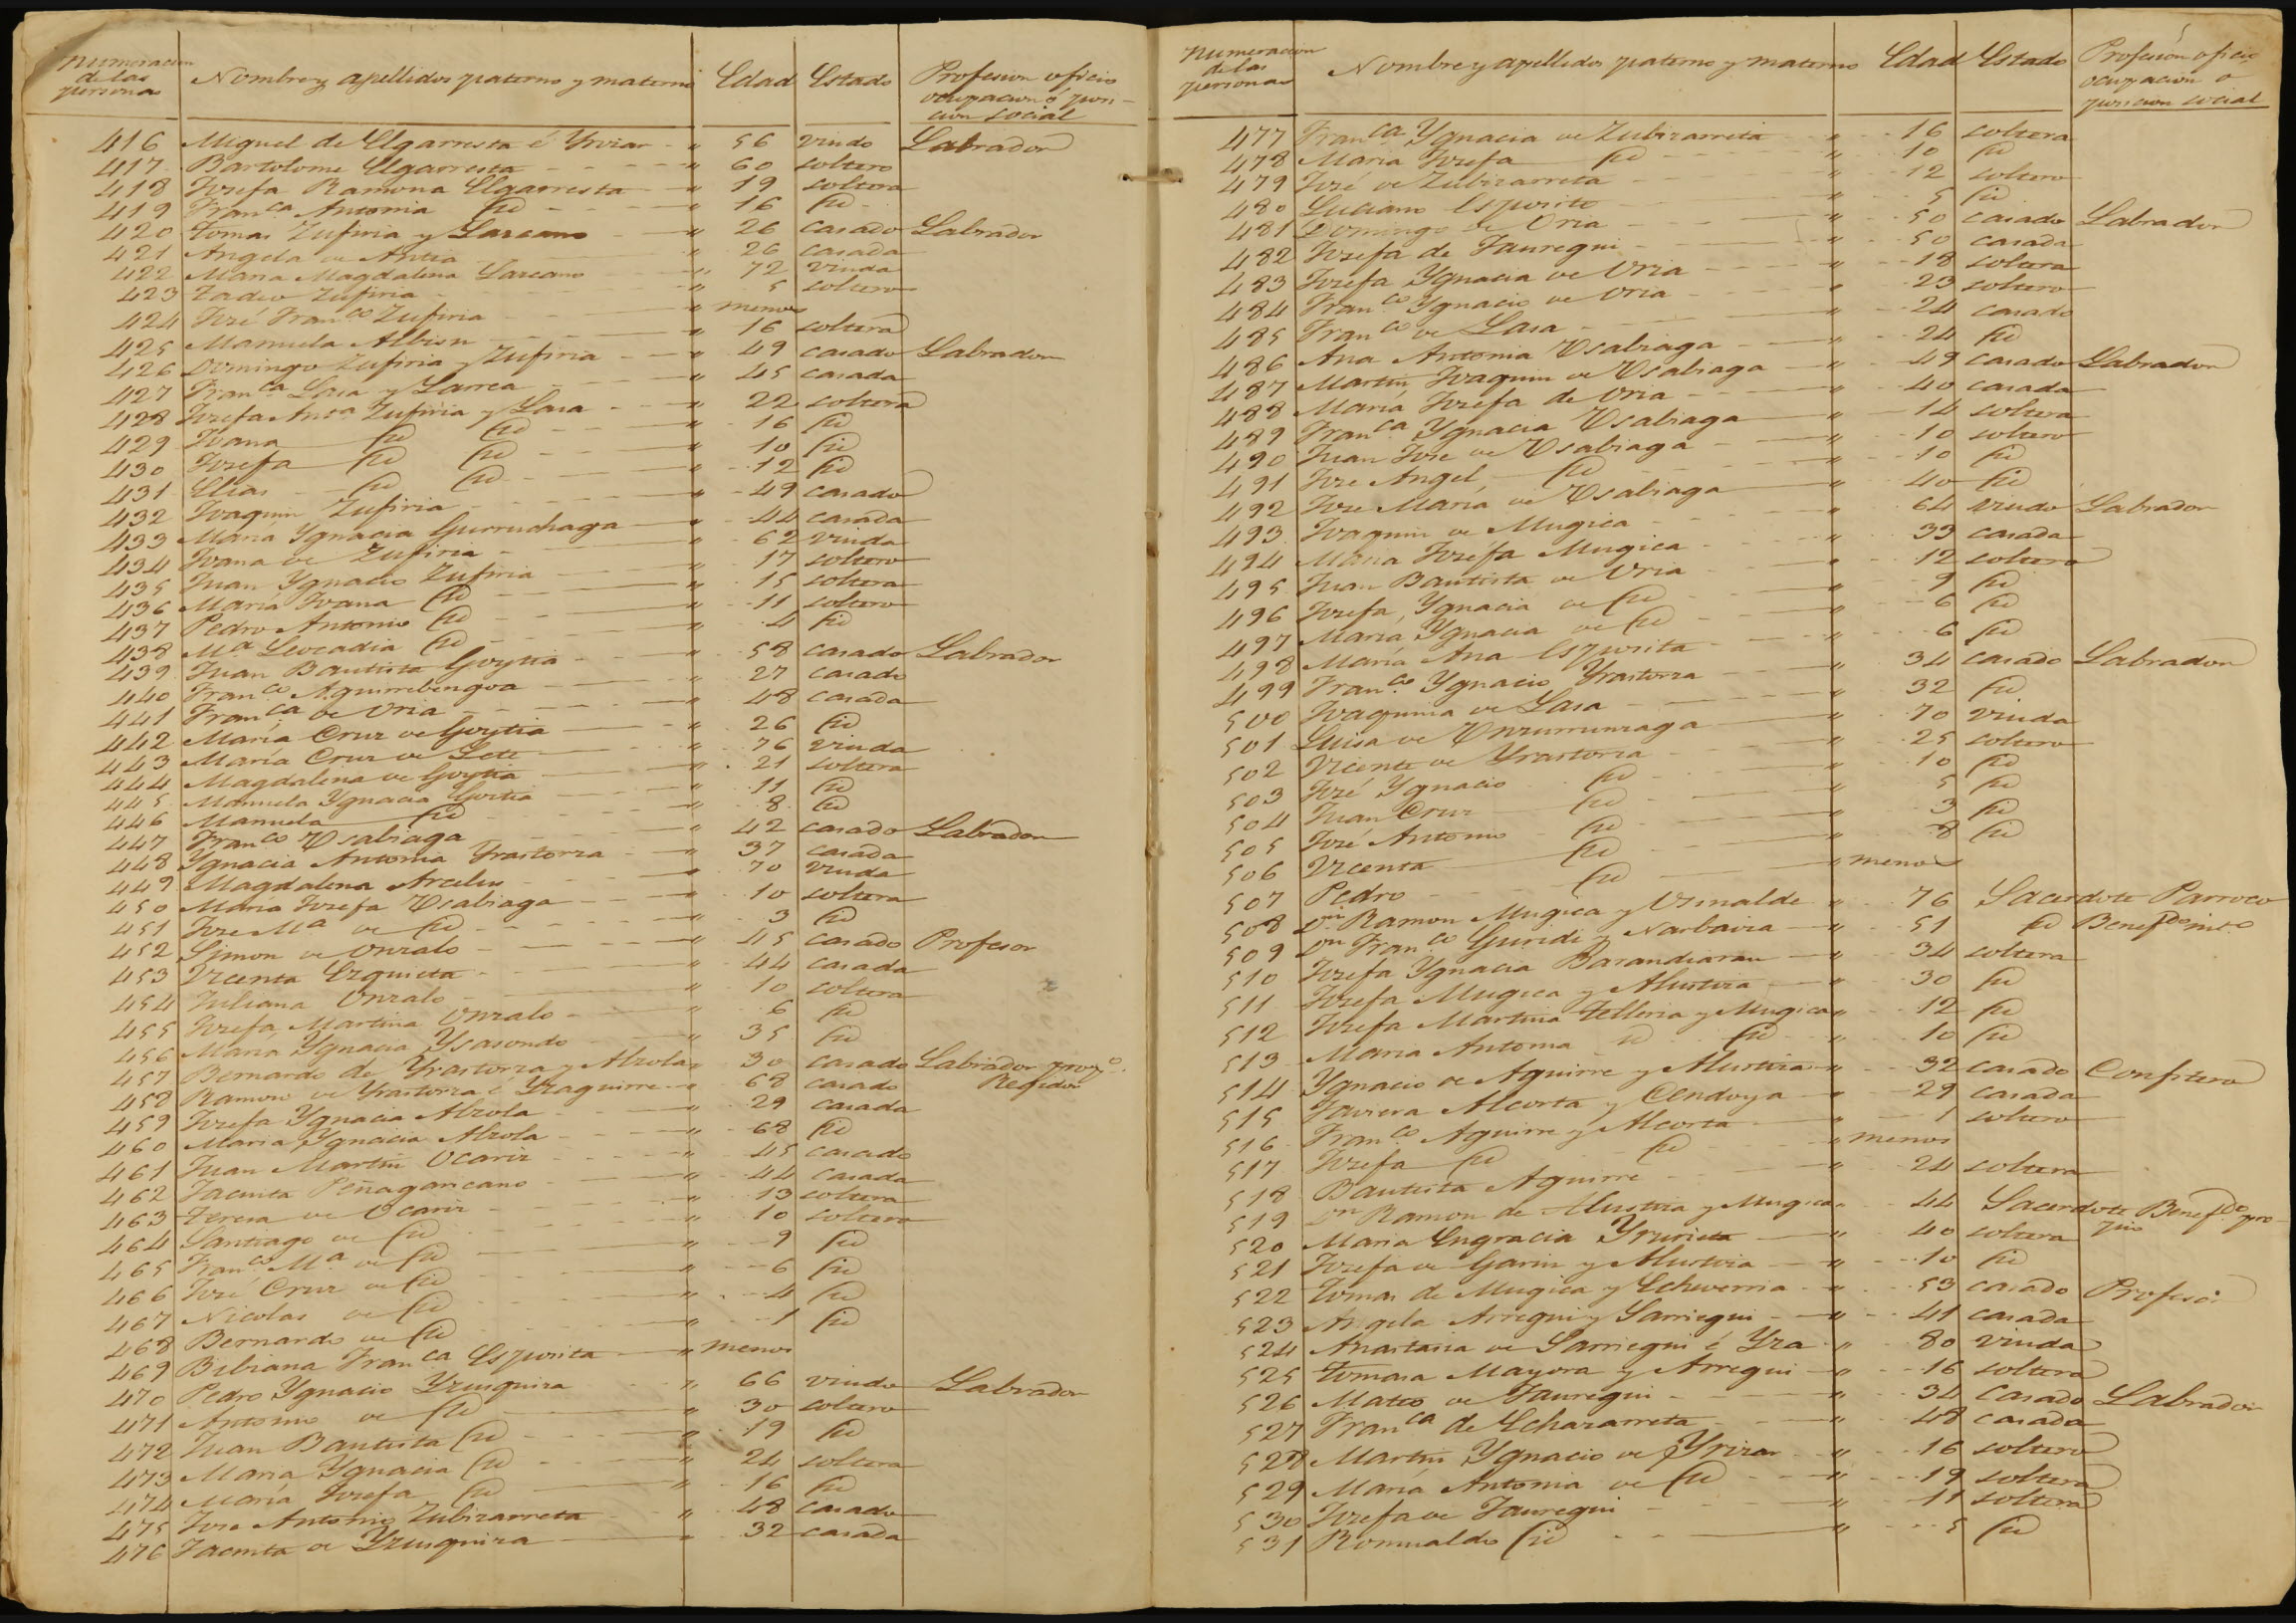 Numeracion de las personas Nombre y apellidos paterno y materno Edad Estado Profesion oficio ocupacion ó posicion social
416 Miguel de Elgarresta é Yrizar 56 viudo Labrador
417 Bartolome Elgarresta 60 soltero
418 Josefa Ramona Elgarresta 19 soltera
419 Franca Antonia id 16 id
420 Tomas Zufiria y Lascano 26 casado Labrador
421 Angela de Antia 26 casada
422 Maria Magdalena Lascano 72 viuda
423 Tadeo Zufiria 5 soltero
424 José Franco Zufiria menor
425 Manuela Albisu 16 soltera
426 Domingo Zufiria y Zufiria 49 casado Labrador
427 Franca Lasa y Larrea 45 casada
428 Josefa Anta Zufiria y Lasa 22 soltera
429 Joana id id 16 id
430 Josefa id id 10 id
431 Elias id id 12 id
432 Joaquin Zufiria 49 casado
433 María Ygnacia Gurruchaga 44 casada
434 Joana de Zufiria 62 viuda
435 Juan Ygnacio Zufiria 17 soltero
436 María Joana id 15 soltera
437 Pedro Antonio id 11 soltero
438 Ma Leocadia id 4 id
439 Juan Bautista Goytia 58 casado Labrador
440 Franco Aguirrebengoa 27 casado
441 Franca de Oria 48 casada
442 María Cruz de Goytia 26 id
443 María Cruz de Lete 76 viuda
444 Magdalena de Goytia 21 soltera
445 Manuela Ygnacia Goitia 11 id
446 Manuela id 8 id
447 Franco Usabiaga 42 casado Labrador
448 Ygnacia Antonia Yrastorza 37 casada
449 Magdalena Arcelus 70 viuda
450 Maria Josefa Usabiaga 10 soltera
451 Jose Ma de id 3 id
452 Simon de Onzalo 45 casado Profesor
453 Vicenta Ezquieta 44 casada
454 Juliana Onzalo 10 soltera
455 Josefa Martina Onzalo 6 id
456 María Ygnacia Ysasondo 35 id
457 Bernardo de Yrastorza y Alzola 30 casado Labrador propo
458 Ramon de Yrastorza é Yzaguirre 68 casado Regidor
459 Josefa Ygnacia Alzola 29 casada
460 Maria Ygnacia Alzola 68 id
461 Juan Martin Ocariz 45 casado
462 Jacinta Peñagaricano 44 casada
463 Teresa de Ocariz 13 soltera
464 Santiago de id 10 soltero
465 Franco Ma de id 9 id
466 José Cruz de id 6 id
467 Nicolas de id 4 id
468 Bernardo de id 1 id
469 Bibiana Franca Esposita menor
470 Pedro Ygnacio Yzusquiza 66 viudo Labrador
471 Antonio de id 30 soltero
472 Juan Bautista id 19 id
473 María Ygnacia id 24 soltera
474 María Josefa id 16 id
475 Jose Antonio Zubizarreta 48 casado
476 Jacinta de Yzusquiza 32 casada
Numeracion de las personas Nombre y apellidos paterno y materno Edad Estado Profesión oficio ocupacion o posicion social
477 Franca Ygnacia de Zubizarreta 16 soltera
478 Maria Josefa id 10 id
479 José de Zubizarreta 12 soltero
480 Luciano Esposito 5 id
481 Domingo de Oria 50 casado Labrador
482 Josefa de Jauregui 50 casada
483 Josefa Ygnacia de Oria 18 soltera
484 Franco Ygnacio de Oria 23 soltero
485 Franco de Lasa 24 casado
486 Ana Antonia Usabiaga 24 id
487 Martin Joaquin de Usabiaga 49 casado Labrador
488 María Josefa de Oria 40 casada
489 Franca Ygnacia Usabiaga 14 soltera
490 Juan Jose de Usabiaga 10 soltero
491 Jose Angel id 10 id
492 Jose María de Usabiaga 40 id
493 Joaquin de Mugica 64 viudo Labrador
494 Maria Josefa Mugica 33 casada
495 Juan Bautista de Oria 12 soltero
496 Josefa Ygnacia de id 9 id
497 María Ygnacia de id 6 id
498 María Ana Esposita 6 id
499 Franco Ygnacio Yrastorza 34 casado Labrador
500 Joaquina de Lasa 32 id
501 Luisa de Unzurrunzaga 70 viuda
502 Vicente de Yrastorza 25 soltero
503 José Ygnacio id 10 id
504 Juan Cruz id 5 id
505 José Antonio id 3 id
506 Vicenta id 8 id
507 Pedro id menor
508 Dn Ramon Mugica y Usinalde 76 Sacerdote Parroco
509 Dn Franco Guridi y Narbaiza 51 id Benefdo
510 Josefa Ygnacia Barandiaran 34 soltera
511 Josefa Mugica y Alustiza 30 id
512 Josefa Martina Telleria y Mugica 12 id
513 Maria Antonia id id 10 id
514 Ygnacio de Aguirre y Alustiza 32 casado Confitero
515 Javiera Alcorta y Cendoya 29 casada
516 Franco Aguirre y Alcorta 1 soltero
517 Josefa id id menor
518 Bautista Aguirre 24 soltera
519 Dn Ramon de Alustiza y Mugica 44 Sacerdote Benefdo propio
520 Maria Engracia Yrurieta 40 soltera
521 Josefa de Garin y Alustiza 10 id
522 Tomas de Mugica y Echeverria 53 casado Profesor
523 Angela Arregui y Sarriegui 41 casada
524 Anastasia de Sarriegui é Yza 80 viuda
525 Tomasa Mayora y Arregui 16 soltera
526 Mateo de Jauregui 34 casado Labrador
527 Franca de Echazarreta 48 casada
528 Martin Ygnacio de Yrizar 16 soltero
529 María Antonia de id 19 soltera
530 Josefa de Jauregui 11 soltera
531 Romualdo id 5 id